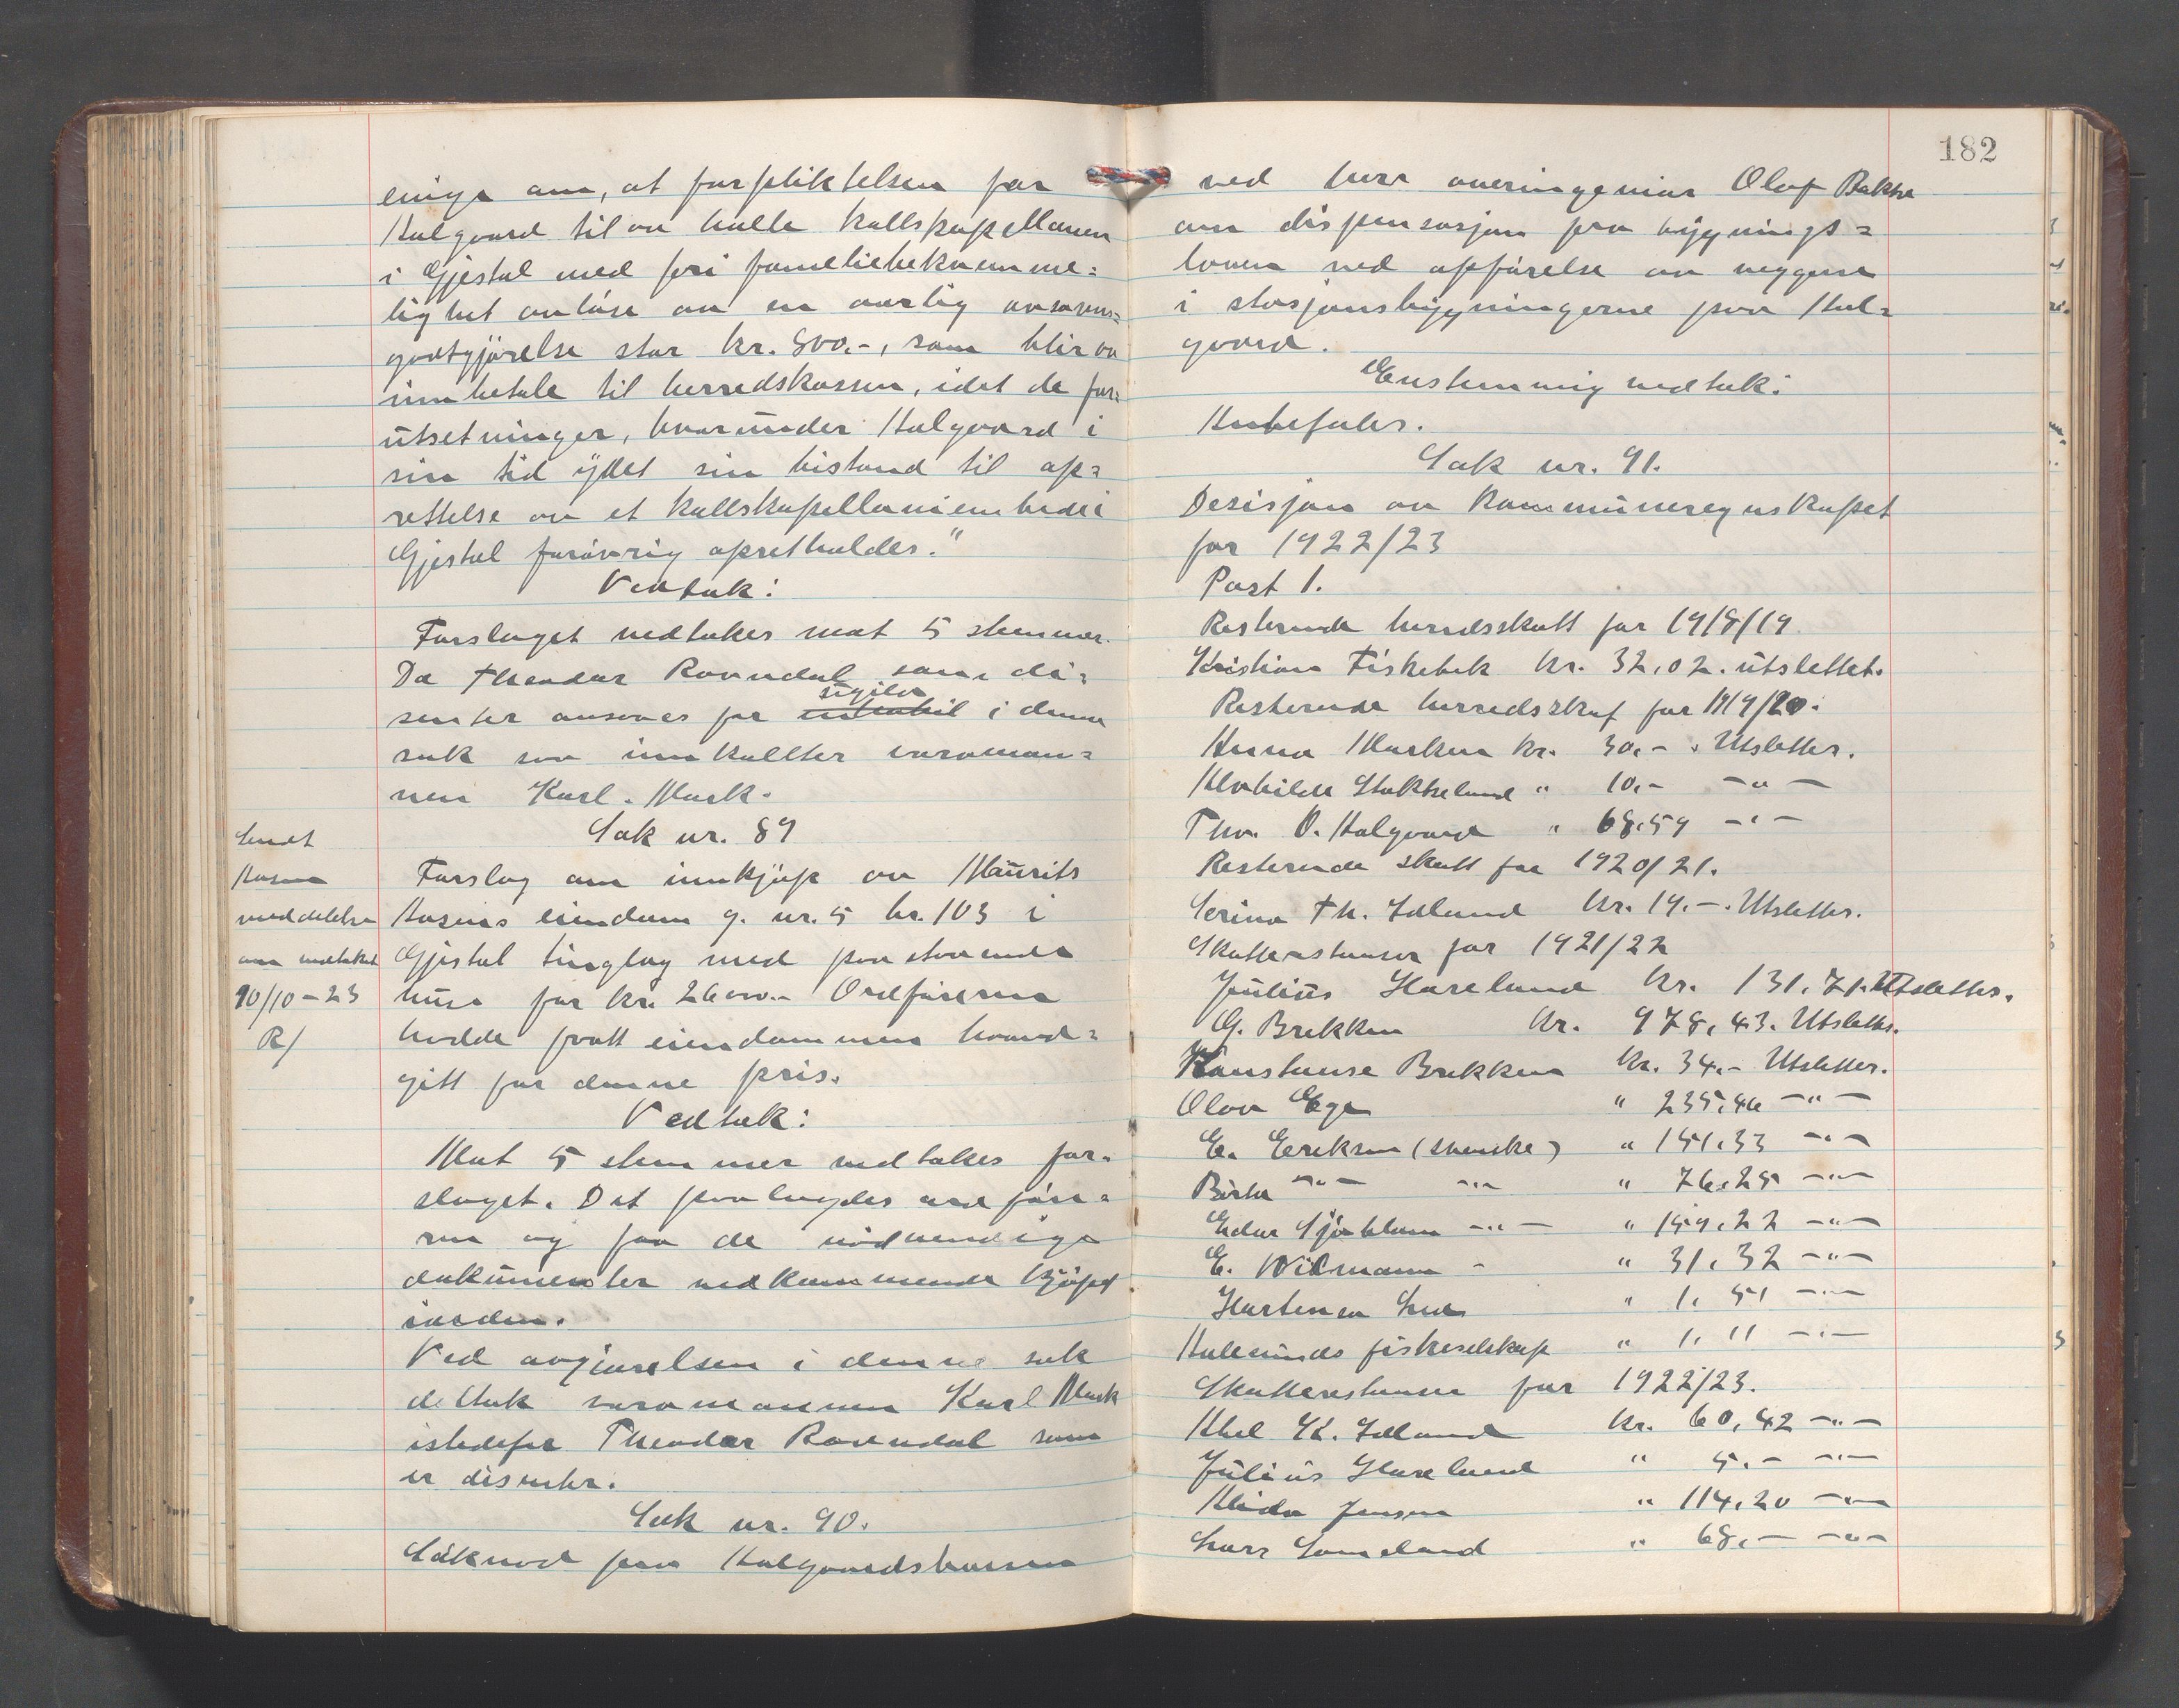 enige om, at forpliktelsen for
Aalgaard til aa holle kallskapellanen
i Gjestal med fri fameliebekvemme=
lighet avlöse av en aarlig avsavns=
godtgjörelse stor kr. 800.-, som blir aa
innbetale til herredskassen, idet de for=
utsetninger, hvorunder Aalgaard i
sin tid ydet sin bistand til op=
rettelse av et kallskapellaniembede i
Gjestal forövrig opretholdes."
Vedtak:
Forslaget vedtakes mot 5 stemmer.
Da Theodor Ravndal som di=
senter ansaaes for ugild i denne
sak saa innkalltes varaman=
nen Karl Mark.
Sak nr. 89
Sendt
Aasen
meddelelse
om vedtaket
10/10-23
R/
Forslag om innkjöp av Maurits
Aasens eiendom g. nr. 5 br. 103 i
Gjestal tinglag med paastaaende
huse for kr. 26000.- Ordföreren
hadde faatt eiendommen haand=
gitt for denne pris.
Vedtak:
Mot 5 stemmer vedtakes for=
slaget. Det paalegdes ordföre=
ren og faa de nödvendige
dokumenter vedkommende kjöpet
iorden.
Ved avgjörelsen i denne sak
deltok varamannen Karl Mark
istedefor Theodor Ravndal som
er disenter.
Sak nr. 90.
Söknad fra Aalgaardsbanen
182
ved herr overingeniör Olaf Bakke
om dispensasjon fra bygnings=
loven ved opförelse av veggene
i stasjonsbygningerne paa Aal=
gaard.
Enstemmig vedtak:
Anbefales.
Sak nr. 91.
Desisjon av kommuneregnskapet
for 1922/23
Post 1.
Resterende herredsskatt for 1918/19
Kristian Fiskebek kr. 32,02. utslettet.
Resterende herredsskat for 1919/20.
Anna Marken kr. 30,- . Utslettes.
Mabilde Stokkeland " 10,- -"-
Tho. O. Aalgaard " 68,59 -"-
Resterende skatt for 1920/21.
Serina Th. Edland kr. 19.-. Utslettes.
Skatterestanser for 1921/22
Julius Hareland kr. 131,71. Utslettes.
G. Brekken kr. 978,43. Utslettes.
Konstanse Brekken kr. 34.- Utslettes.
Olav Ege " 235,46 -"-
E. Eriksen (svenske) " 151,33 -"-
Börta -"- -"- " 76,25 -"-
Edar Sjöblom -"- " 159,22 -"-
E. Widmann - " 31,32 -"-
" 1,51 -"-
Aalesunds fiskeselskap " 1,11 -"-
Skatterestanser for 1922/23.
Abel K. Edland kr. 60,42 -"-
Julius Hareland " 5.- -"-
Alida Jensen " 114,20 -"-
Lars Sameland " 68,- -"-